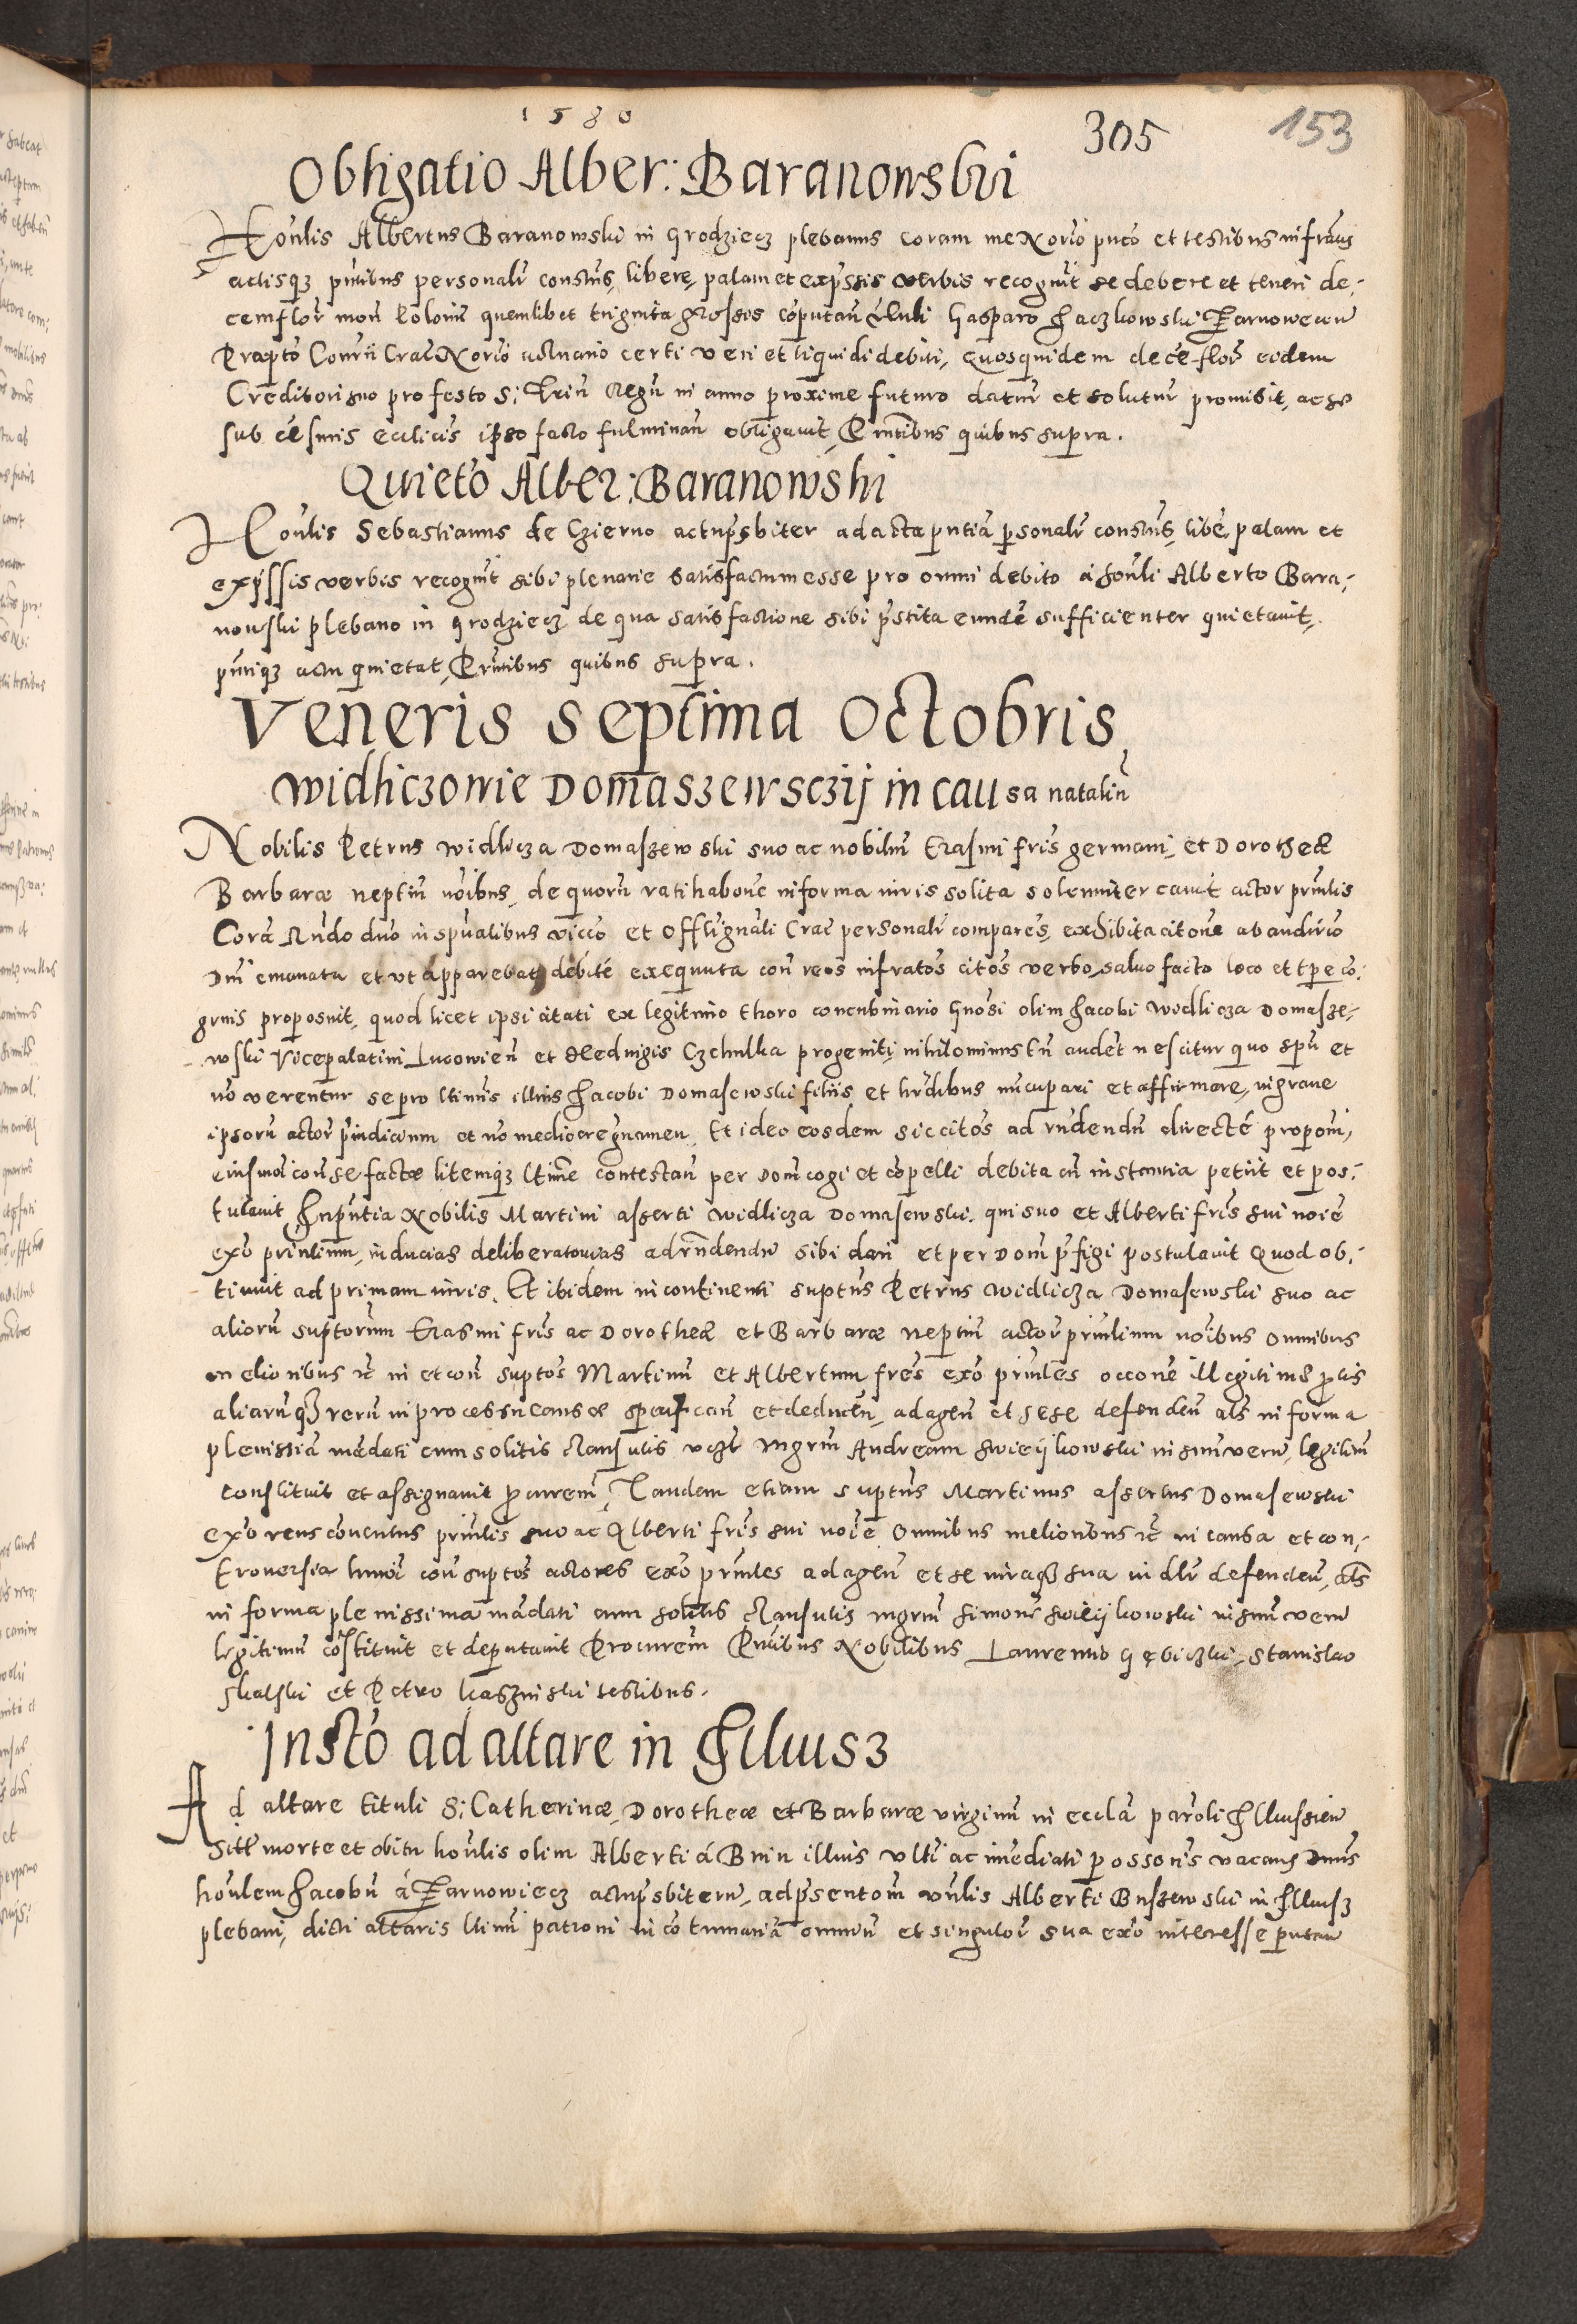 1580
305 153
Obligatio Alber: Baranowskii
Honłis Albertus Baranowski in Grodziecz plebanus coram me Norio puco et testibus infraus
actisqz pntibus personalr constus, libere, palam et expssis verbis recognut se debere et teneri de-
cem flor mon Poloni quemlibet triginta grossos coputan Gasparo Jaczkowski Tarnowecen
Praepto Norio actuario certi veri et liquidi debiti, quosquidem dece flor eidem
Creditori suo pro festo S: Triu Regu in anno proxime futuro datur et solutur promisit, ac se
sub cesuris ecclicis ipso facto fulminan obligavit, Pntibus quibus supra.
Quieto Alber: Baranowski
Honlis Sebastianus de Czierno actupsbiter ad acta pntia psonalr constus, libe, palam et
expssis verbis recognut sibi plenarie satisfactum esse pro omni debito a honli Alberto Bara-
nowski plebano in Grodziecz de qua satisfactione sibi pstita eunde sufficienter quietavit,
pntiqz actu quietat, Pntibus quibus supra.
Veneris septima Octobris
Widliczowie Domaszewsczij in causa nataliu
Nobilis Petrus Widlicza Domaszewski suo ac nobilium Erasmi fris germani, et Dorotheae
Barbarae neptiu noibus, de quoru ratihabone in forma iuris solita solenniter cavit actor prnlis
Cora Rndo dno in spualibus vicco et Offli gnali Crac personalr compares, exhibita citone ab
Dni emanata et ut apparebat debite exequuta con reos infratos citos verbo, salvo facto loco et tpe co-
gruis proposuit, quod licet ipsi citati ex legitimo thoro concubinario Gnosi olim Jacobi Widlicza Domasze-
wski Vicepalatini Lucowien et Hedvigis Czchulka progeniti, nihilominus tn audet nescitur quo spu et
no verentur se pro ltimis illius Jacobi Domasewski filiis et hrdibus nucupari et affirmare, in grave
ipsoru actor piudicium et no mediocre gnamen, Et ideo eosdem sic citos ad rndendu directe propom,
eiusmoi con se factae litemqz ltime contestan per Dom cogi et copelli debita cu instantia petiit et pos-
tulavit, In pntia Nobilis Martini asserti Widlicza Domasewski, qui suo et Alberti fris sui noie
exo prinlium, inducias deliberatorias ad rndendu sibi dari et per Dom pfigi postulavit Quod ob-
tinuit ad primam iuris. Et ibidem in continenti suptus Petrus Widlicza Domasewski suo ac
alioru suptorum Erasmi fris ac Dorotheae et Barbarae neptiu actor prinlium noibus omnibus
melioribus rc in et con suptos Martinu et Albertum fres exo prinles occone illegitimae plis
aliaruqz reru in processu causae can et deducen, ad agen et sese defenden als in forma
plenissia madati cum solitis clausulis vczt Mgrm Andream Swieijkowski in suu veru, legitim
constituit et assignavit procurem, Tandem etiam suptus Martinus assertus Domasewski
exo reus conventus prinlis suo ac Alberti fris sui noie Omnibus melioribus rc in causa et con-
troversia hmoi con suptos actores exo prinles ad agen et se iuraqz sua defenden, als
in forma plenissima madati cum solitis clausulis Mgrm Simone Swieijkowski in suu veru
legitimu costituit et deputavit Procurem Pntibus Nobilibus Laurentio Gębiczki, Stanislao
Skalski et Petro Kaszinski testibus.
Insto ad altare in Ilkusz
Ad altare tituli S: Catherinae, Dorotheae et Barbarae virginu in eccla paroli Ilkussien
Sitt morte et obitu honlis olim Alberti á Bnin illius ulti ac imediati possoris vacans Dnus
honlem Jacobu á Tarnowiecz actupsbiteru, ad psentom vnlis Alberti Buszewski in Ilkusz
plebani, dicti altaris ltimi patroni in cotumatia omniu et singulor sua exo interesse putan